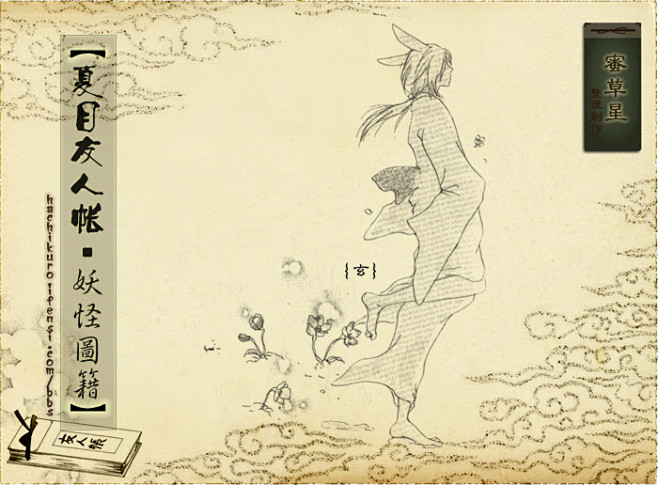 【夏目友人帐·妖怪圖籍】
hachikuro.ifensi.com/bbs
友人帐
{玄}
蜜草星
整理制作